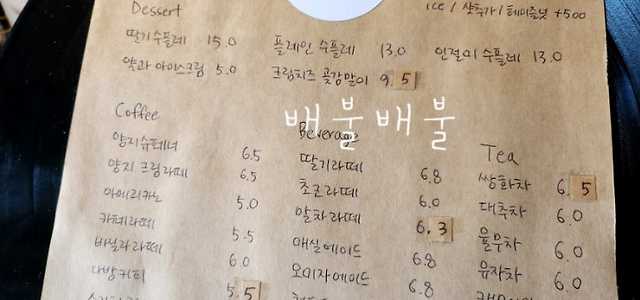 Dessert
ice / 샷추가 / 헤이즐넛 +500
딸기수플레 15.0 플레인 수플레 13.0 인절미 수플레 13.0
약과 아이스크림 5.0 크림치즈 곶감말이 9.5
배불배불
Coffee
양지슈페너 6.5
양지 크림라떼 6.5
아메리카노 5.0
카페라떼 5.5
바닐라라떼 6.0
다방커피 5.5
Beverage
딸기라떼 6.8
초코라떼 6.0
말차라떼 6.3
매실에이드 6.8
오미자에이드 6.8
Tea
쌍화차 6.5
대추차 6.0
율무차 6.0
유자차 6.0